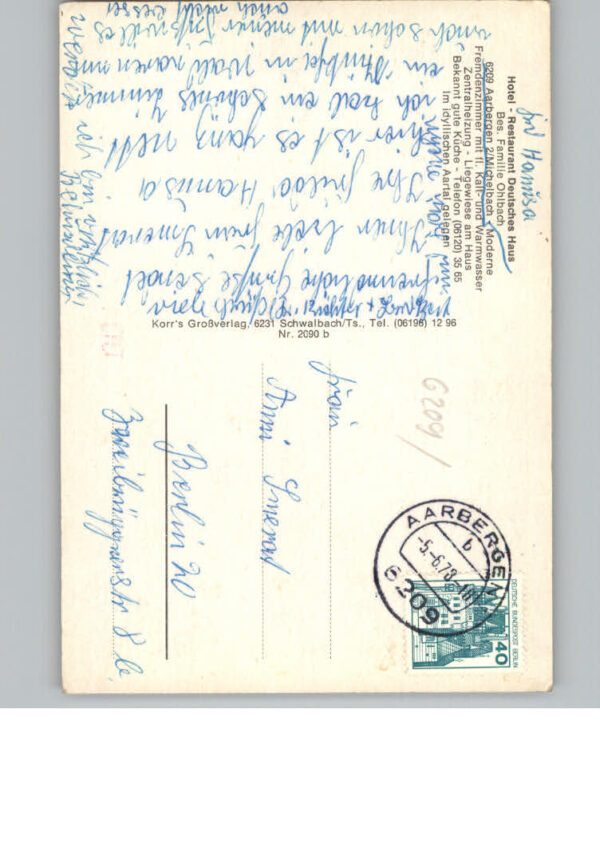 Hotel - Restaurant Deutsches Haus
Bes. Familie Ohlbach
6209 Aarbergen 2/Michelbach Moderne
Fremdenzimmer mit fl. Kalt- und Warmwasser
Zentralheizung - Liegewiese am Haus
Bekannt gute Küche - Telefon (06120) 35 65
Im idyllischen Aartal gelegen
Korr's Großverlag, 6231 Schwalbach/Ts., Tel. (06196) 12 96
Nr. 2090 b
freundliche Grüße sendet
Ihnen liebe Frau Smerat
Ihre Frieda Hannsa
hier ist es ganz nett
ich hab ein schönes Zimmer
ein
in Wald waren wir
auch schon mit meiner
auch nicht besser
Frau
Anni Smerat
Berlin 20
Zweibrückerstr 8 b
6209/
AARBERGEN
b
-5.-6.78
6209
DEUTSCHE BUNDESPOST BERLIN
40